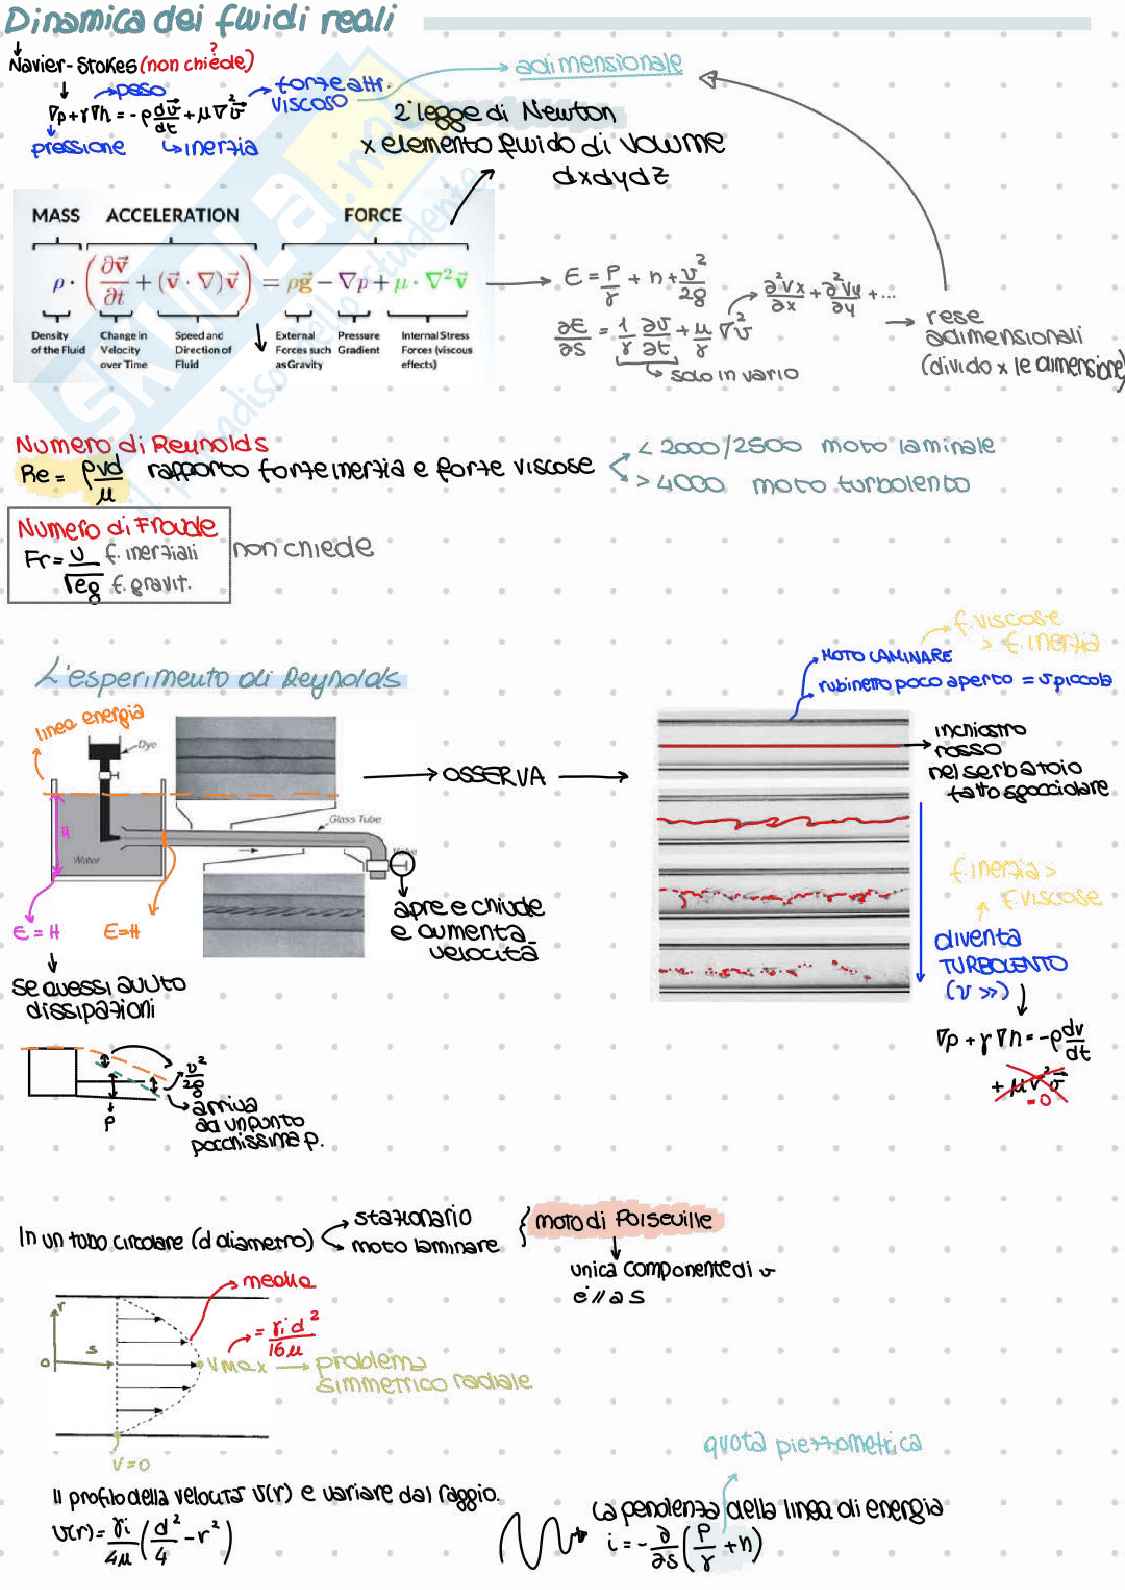 Dinamica dei fluidi reali
?
Navier-Stokes (non chiede)
peso
forze attr. viscoso
adimensionale
∇p+γ∇h = -ρ dv⃗/dt + μ∇²v⃗
pressione
inerzia
2ª legge di Newton
x elemento fluido di volume
dxdydz
MASS ACCELERATION FORCE
ρ · (∂v⃗/∂t + (v⃗ · ∇)v⃗) = ρg⃗ − ∇p + μ · ∇²v⃗
Density of the Fluid
Change in Velocity over Time
Speed and Direction of Fluid
External Forces such as Gravity
Pressure Gradient
Internal Stress Forces (viscous effects)
E = P/γ + h + v²/2g
∂E/∂s = 1/γ ∂v/∂t + μ/γ ∇²v⃗
∂²Vx/∂x + ∂²Vy/∂y + ...
solo in vario
rese
adimensionali
(divido x le dimensione)
Numero di Reynolds
Re = ρvd/μ rapporto forze inerzia e forze viscose
< 2000/2500 moto laminale
> 4000 moto turbolento
Numero di Froude
Fr = v/√eg f. inerziali
f. gravit.
non chiede
L'esperimento di Reynolds
linea energia
Dye
Glass Tube
Water
Valve
H
E = H
E=H
OSSERVA
apre e chiude
e aumenta
velocità
se avessi avuto
dissipazioni
v²/2g
P
arriva
ad un punto
pochissima p.
f. viscose
> f. inerzia
MOTO LAMINARE
rubinetto poco aperto = v piccola
inchiostro
rosso
nel serbatoio
fatto sgocciolare
f. inerzia >
f. viscose
diventa
TURBOLENTO
(v >>)
∇p + γ∇h = -ρ dv/dt
+ μ∇²v⃗
=0
In un tubo circolare (d diametro)
stazionario
moto laminare
moto di Poiseuille
unica componente di v
è // a s
media
r
s
0
vmax
= γi d²/16μ
problema
simmetrico radiale
v=0
Il profilo della velocità v(r) e variare dal raggio.
v(r) = γi/4μ (d²/4 - r²)
quota piezometrica
La pendenza della linea di energia
i = -∂/∂s (P/γ + h)
SKUOLA.net
il paradiso dello studente